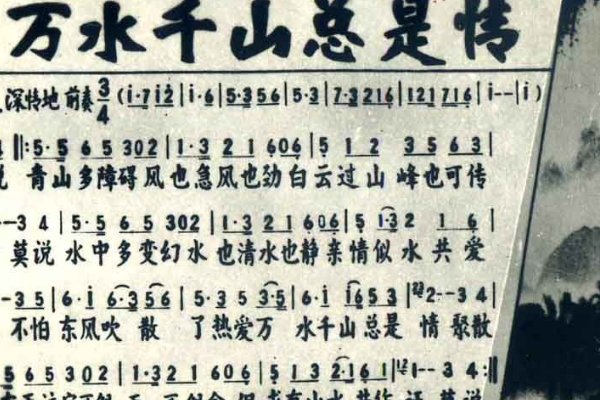 万水千山总是情
深情地 前奏 3/4 (i·7 i2|i·6|5·3 5 6|5·3|7·3 2 1 6|1 2 1 7 1 6|i--|i)
‖:5·5 6 5 3 0 2|1·3 2 1 6 0 6|5 1 2 3 5 6 3|
说 青山多障碍风也急风也劲白云过山峰也可传
--3 4|5·5 6 5 3 0 2|1·3 2 1 6 0 6|5 1·3 2 1 6|
莫说水中多变幻水也清水也静亲情似水共爱
-3 5|6·i 6·3 5 6|5·3 5 3·5|6·i i 6 5 3|2--3 4|
不怕东风吹散了热爱万水千山总是情聚散
5 6 5 3 0 2|1·3 2 1 6 0 6|5 1 3 2·1 6 1|1--3 4:‖